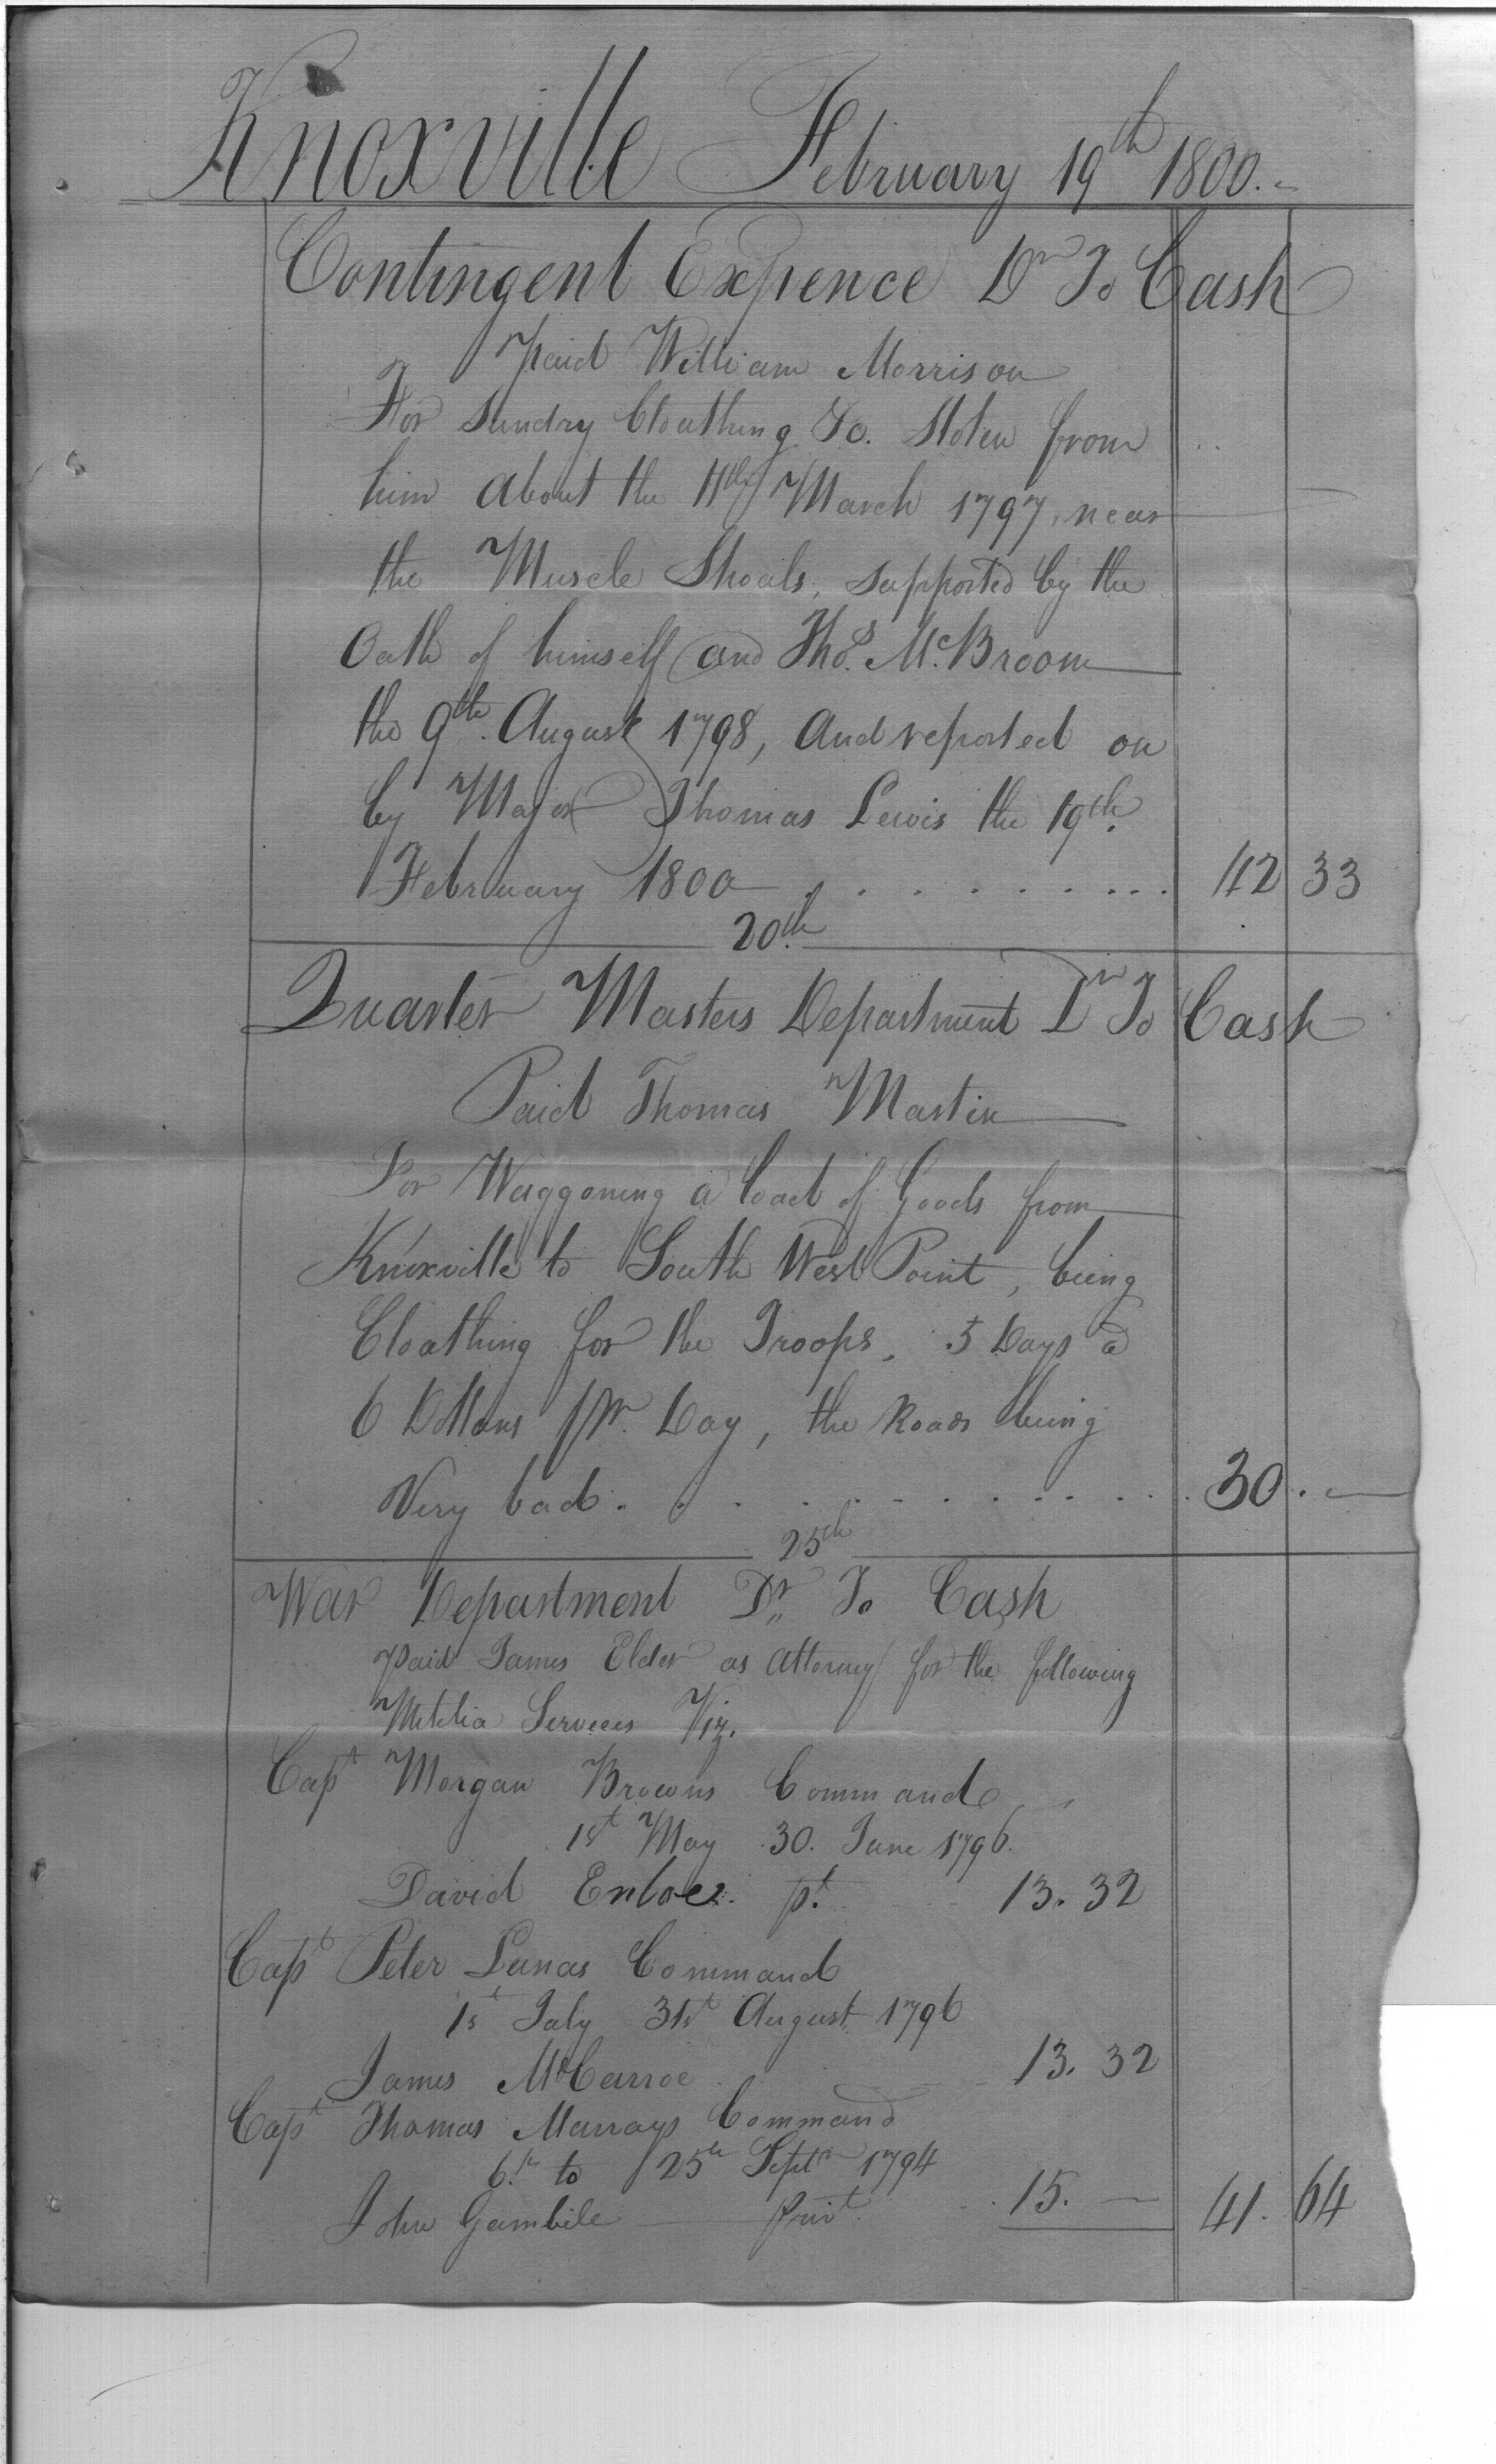 Knoxville February 19th 1800.
Contingent Expence Dr To Cash
paid William Morrison
For Sundry Cloathing &c. Stolen from
him about the 11th March 1797, near
the Muscle Shoals, supported by the
Oath of himself and Thos. McBroom
the 9th. August 1798, And reported on
by Major Thomas Lewis the 19th.
February 1800 . . . . . . . . . 42 33
20th.
Quarter Masters Department Dr To Cash
Paid Thomas Martin
For Waggoning a load of Goods from
Knoxville to South West Point, being
Cloathing for the Troops, 5 Days a
6 Dollars pr. Day, the Roads being
Very bad . . . . . . . . . . . 30. —
25th
War Department Dr. To Cash
paid James Elder as Attorney for the following
Militia Services Viz.
Capt Morgan Browns Command
1st May 30. June 1796.
David Enloe pt. 13. 32
Capt Peter Lunas Command
1st July 31st August 1796
James McCarroe 13. 32
Capt Thomas Murrays Command
6th to 25th Septr 1794
John Gambile privt. 15. — 41. 64